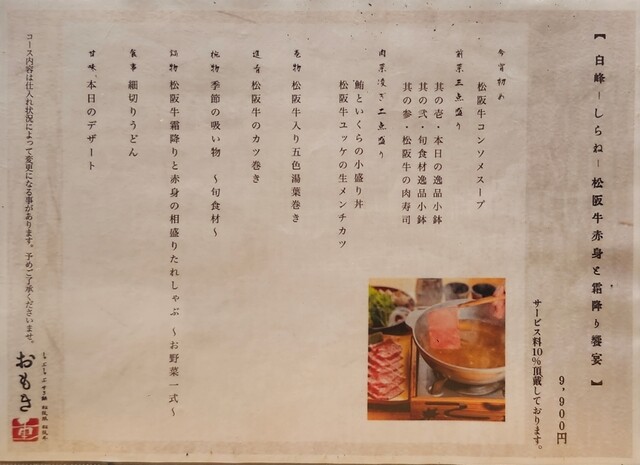 【 白峰ーしらねー松阪牛赤身と霜降り饗宴 】
9,900円
サービス料10%頂戴しております。
今宵初め
松阪牛コンソメスープ
前菜三点盛り
其の壱・本日の逸品小鉢
其の弐・旬食材逸品小鉢
其の参・松阪牛の肉寿司
肉菜凌ぎ二点盛り
鮪といくらの小盛り丼
松阪牛ユッケの生メンチカツ
巻物
松阪牛入り五色湯葉巻き
進肴
松阪牛のカツ巻き
椀物
季節の吸い物 ～旬食材～
鍋物
松阪牛霜降りと赤身の相盛りたれしゃぶ ～お野菜一式～
食事
細切りうどん
甘味
本日のデザート
コース内容は仕入れ状況によって変更になる事があります。予めご了承くださいませ。
おもき